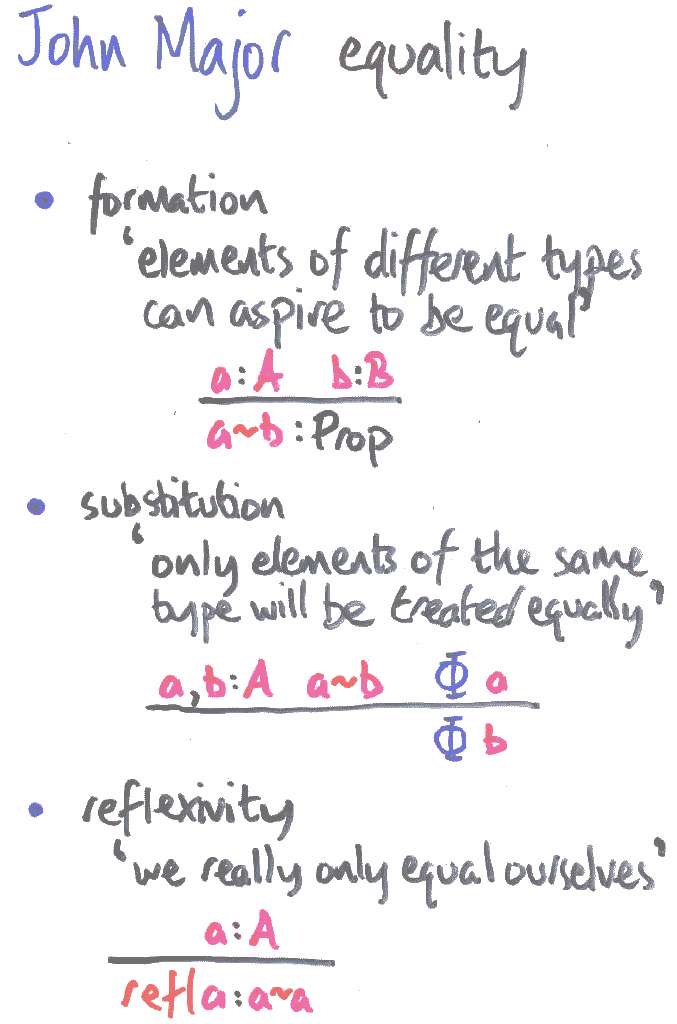 John Major equality
• formation
‘elements of different types
can aspire to be equal’
a:A b:B
a~b:Prop
• substitution
‘only elements of the same
type will be treated equally’
a,b:A a~b Φ a
Φ b
• reflexivity
‘we really only equal ourselves’
a:A
refl a:a~a